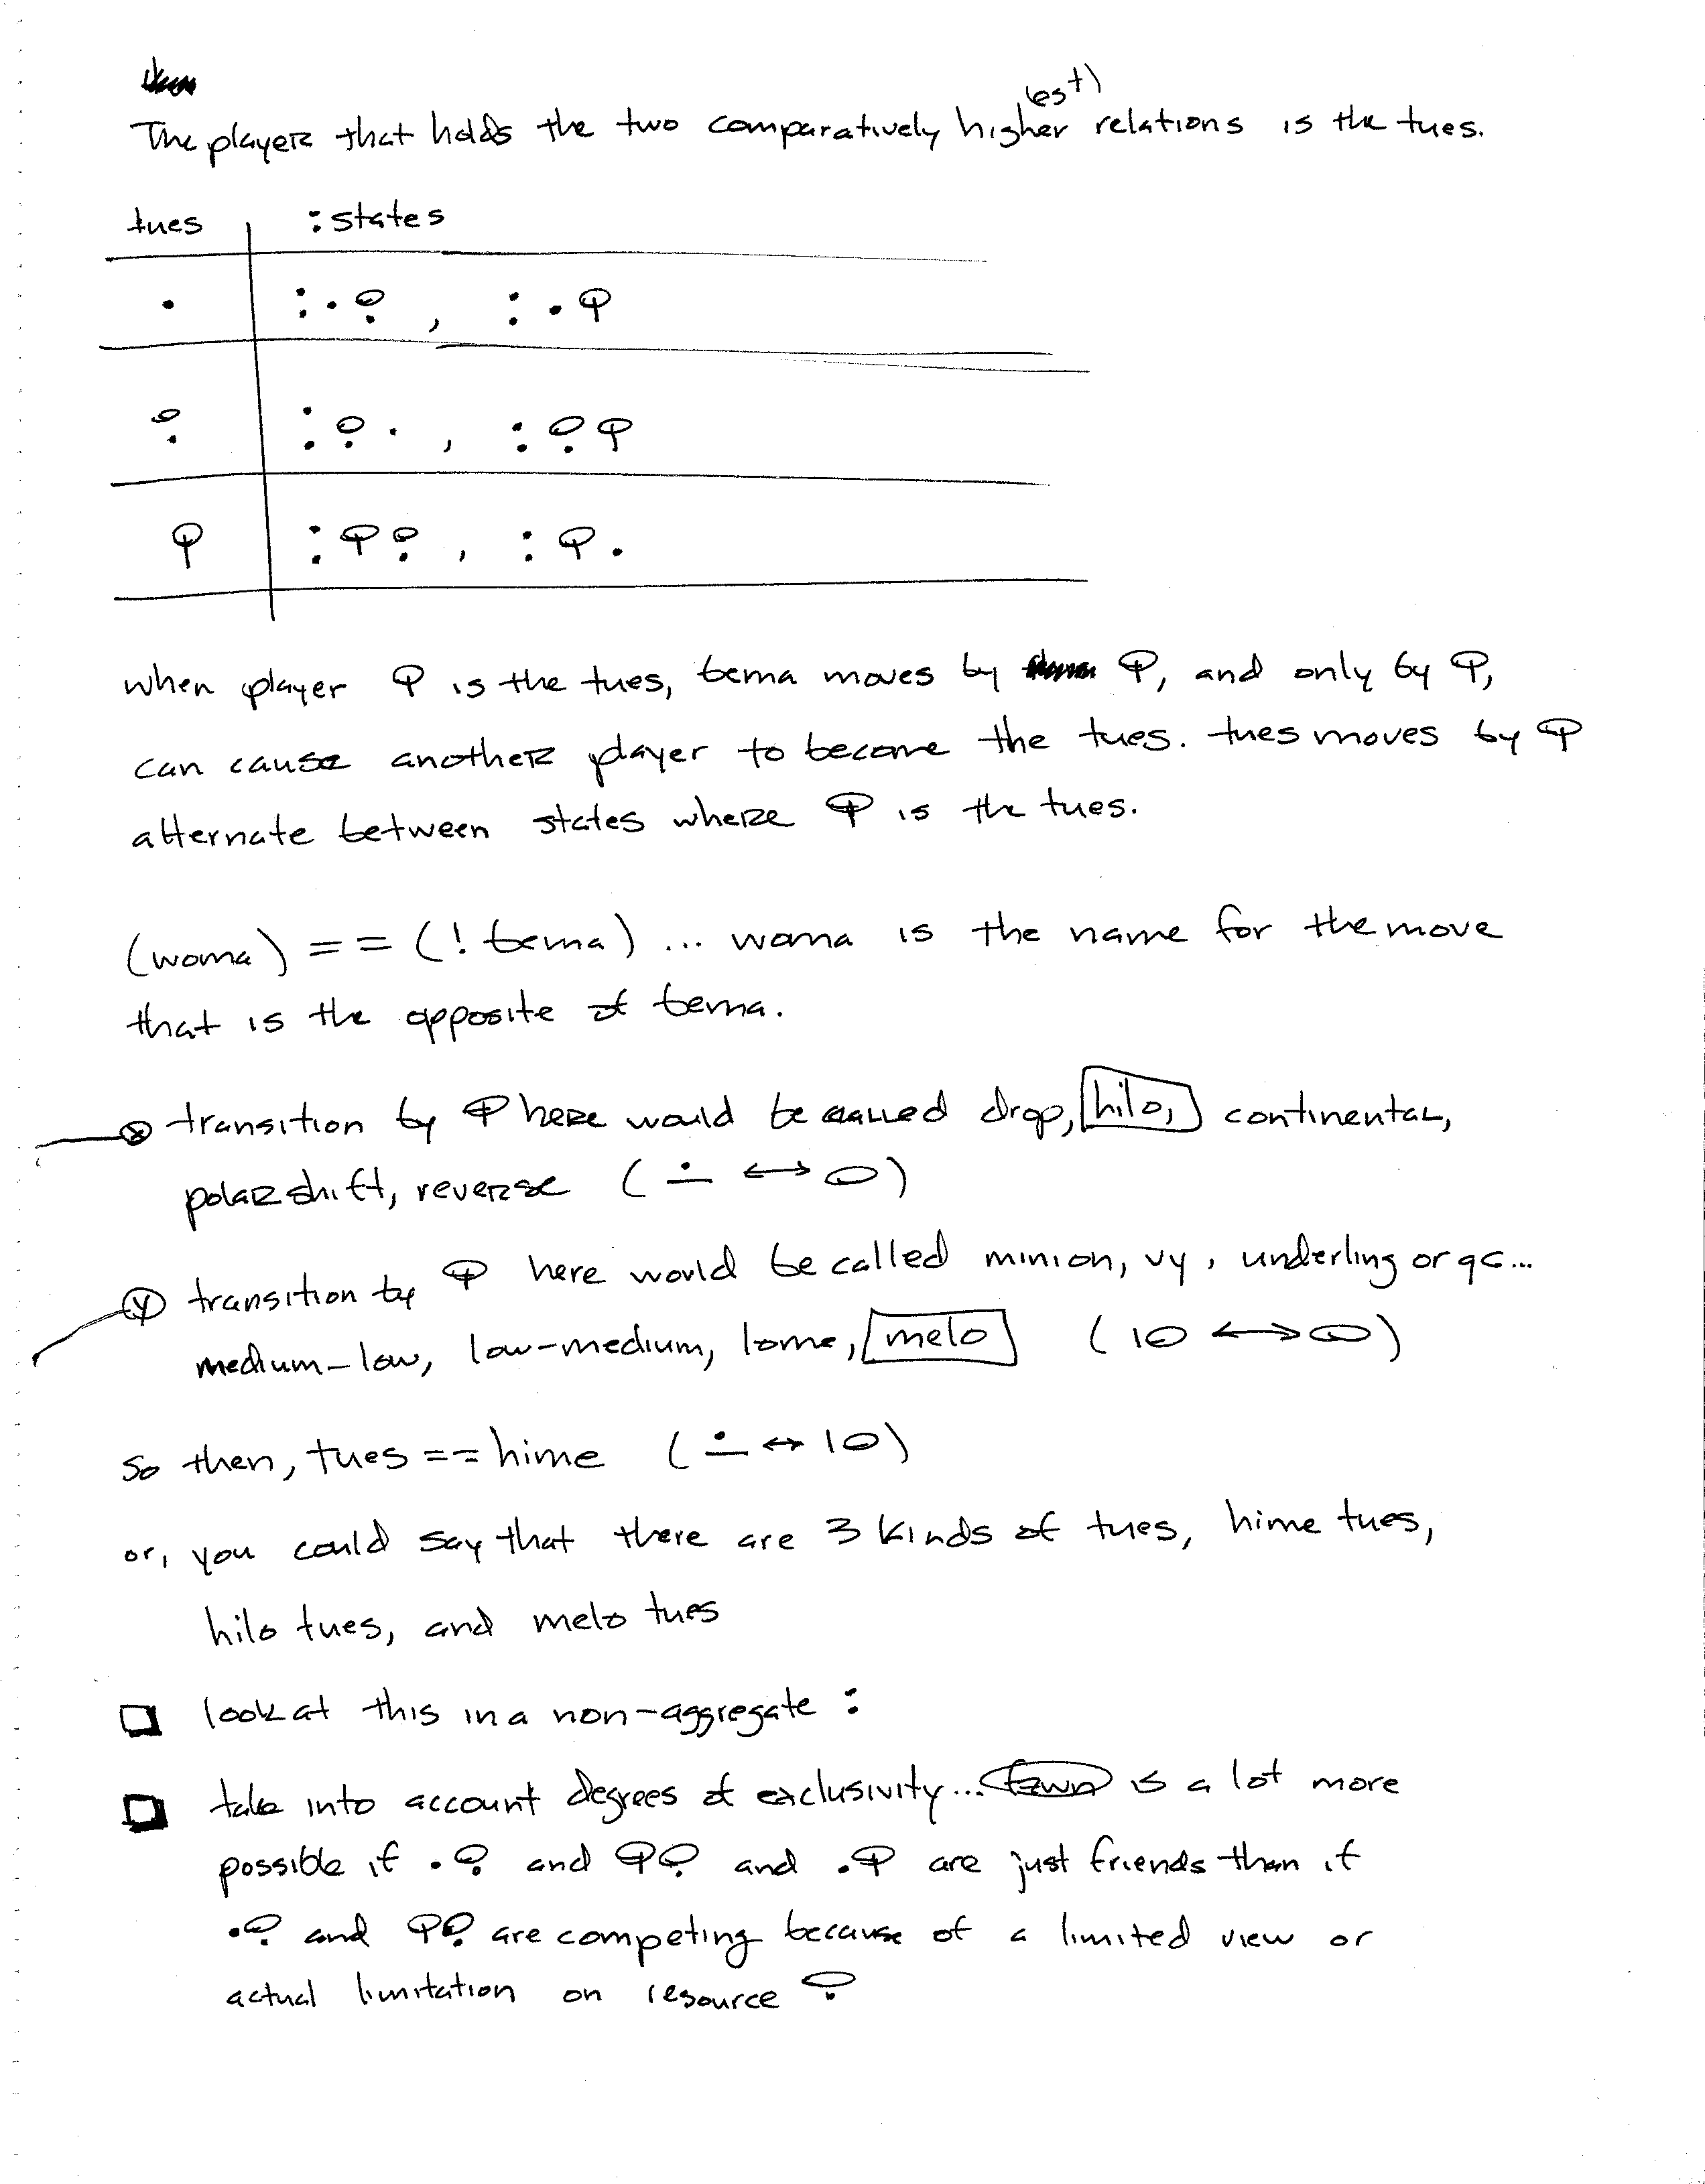 (est)
The player that holds the two comparatively higher relations is the tues.
tues :states
when player is the tues, bema moves by , and only by ,
can cause another player to become the tues. tues moves by
alternate between states where is the tues.
(woma) == (! bema) ... woma is the name for the move
that is the opposite of bema.
ⓧ transition by here would be called drop, hilo, continental,
polarshift, reverse ( ∸ ↔ 0)
ⓨ transition by here would be called minion, vy, underling or qc...
medium-low, low-medium, lome, melo (10 ↔ 0)
so then, tues == hime ( ∸ ↔ 10)
or, you could say that there are 3 kinds of tues, hime tues,
hilo tues, and melo tues
□ look at this in a non-aggregate :
□ take into account degrees of exclusivity... is a lot more
possible if and and are just friends than if
and are competing because of a limited view or
actual limitation on resource